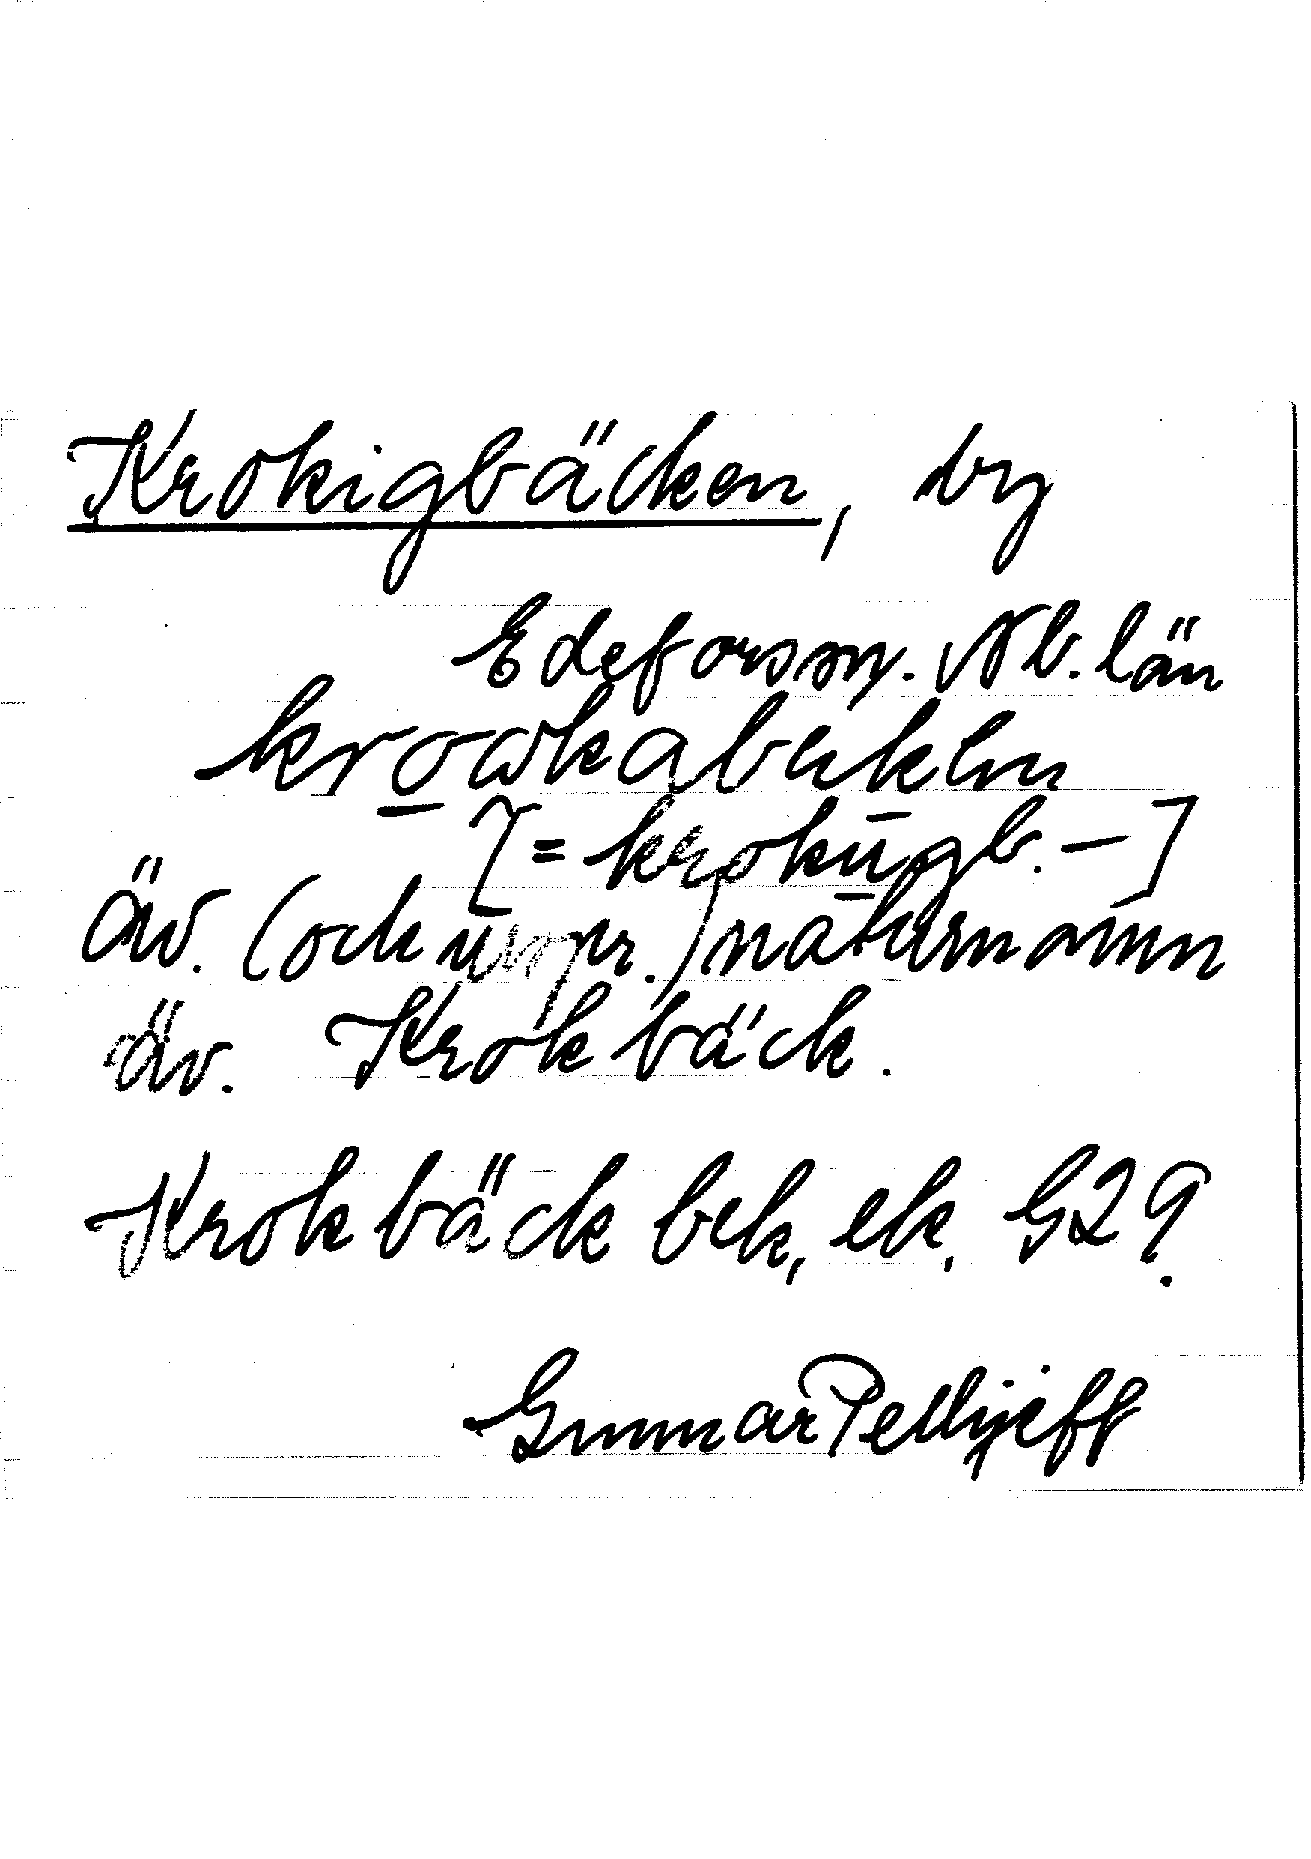 Krokigbäcken, by
Edeforssn. Nb. län
[= krokūgb. – ]
äv. (och ūrspr.) nāturnamn
äv. Krokbäck.
Krokbäck bek, ek. G29.
Gunnar Pellijeff